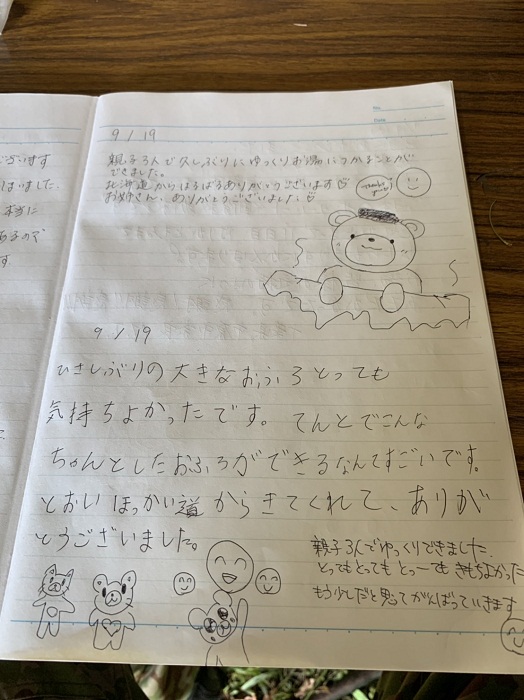 ございます
はいました。
本当に
あるので
す
9/19
親子3人で久しぶりにゆっくりお湯につかることが
できました。
北海道からはるばるありがとうございます♡
お姉さん、ありがとうございました♡
Thank you
9/19
ひさしぶりの大きなおふろとっても
気持ちよかったです。てんとでこんな
ちゃんとしたおふろができるなんてすごいです。
とおいほっかい道からきてくれて、ありが
とうございました。
親子3人でゆっくりできました。
とってもとってもとっーてもきもちよかった
もう少しだと思ってがんばっていきます